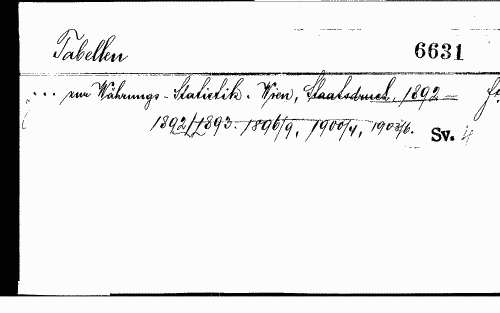 Tabellen 6631
... zur Währungs-Statistik. Wien, Staatsdruck. 1892 —
1892/1893. 1896/9, 1900/4, 1903/6. Sv. 4